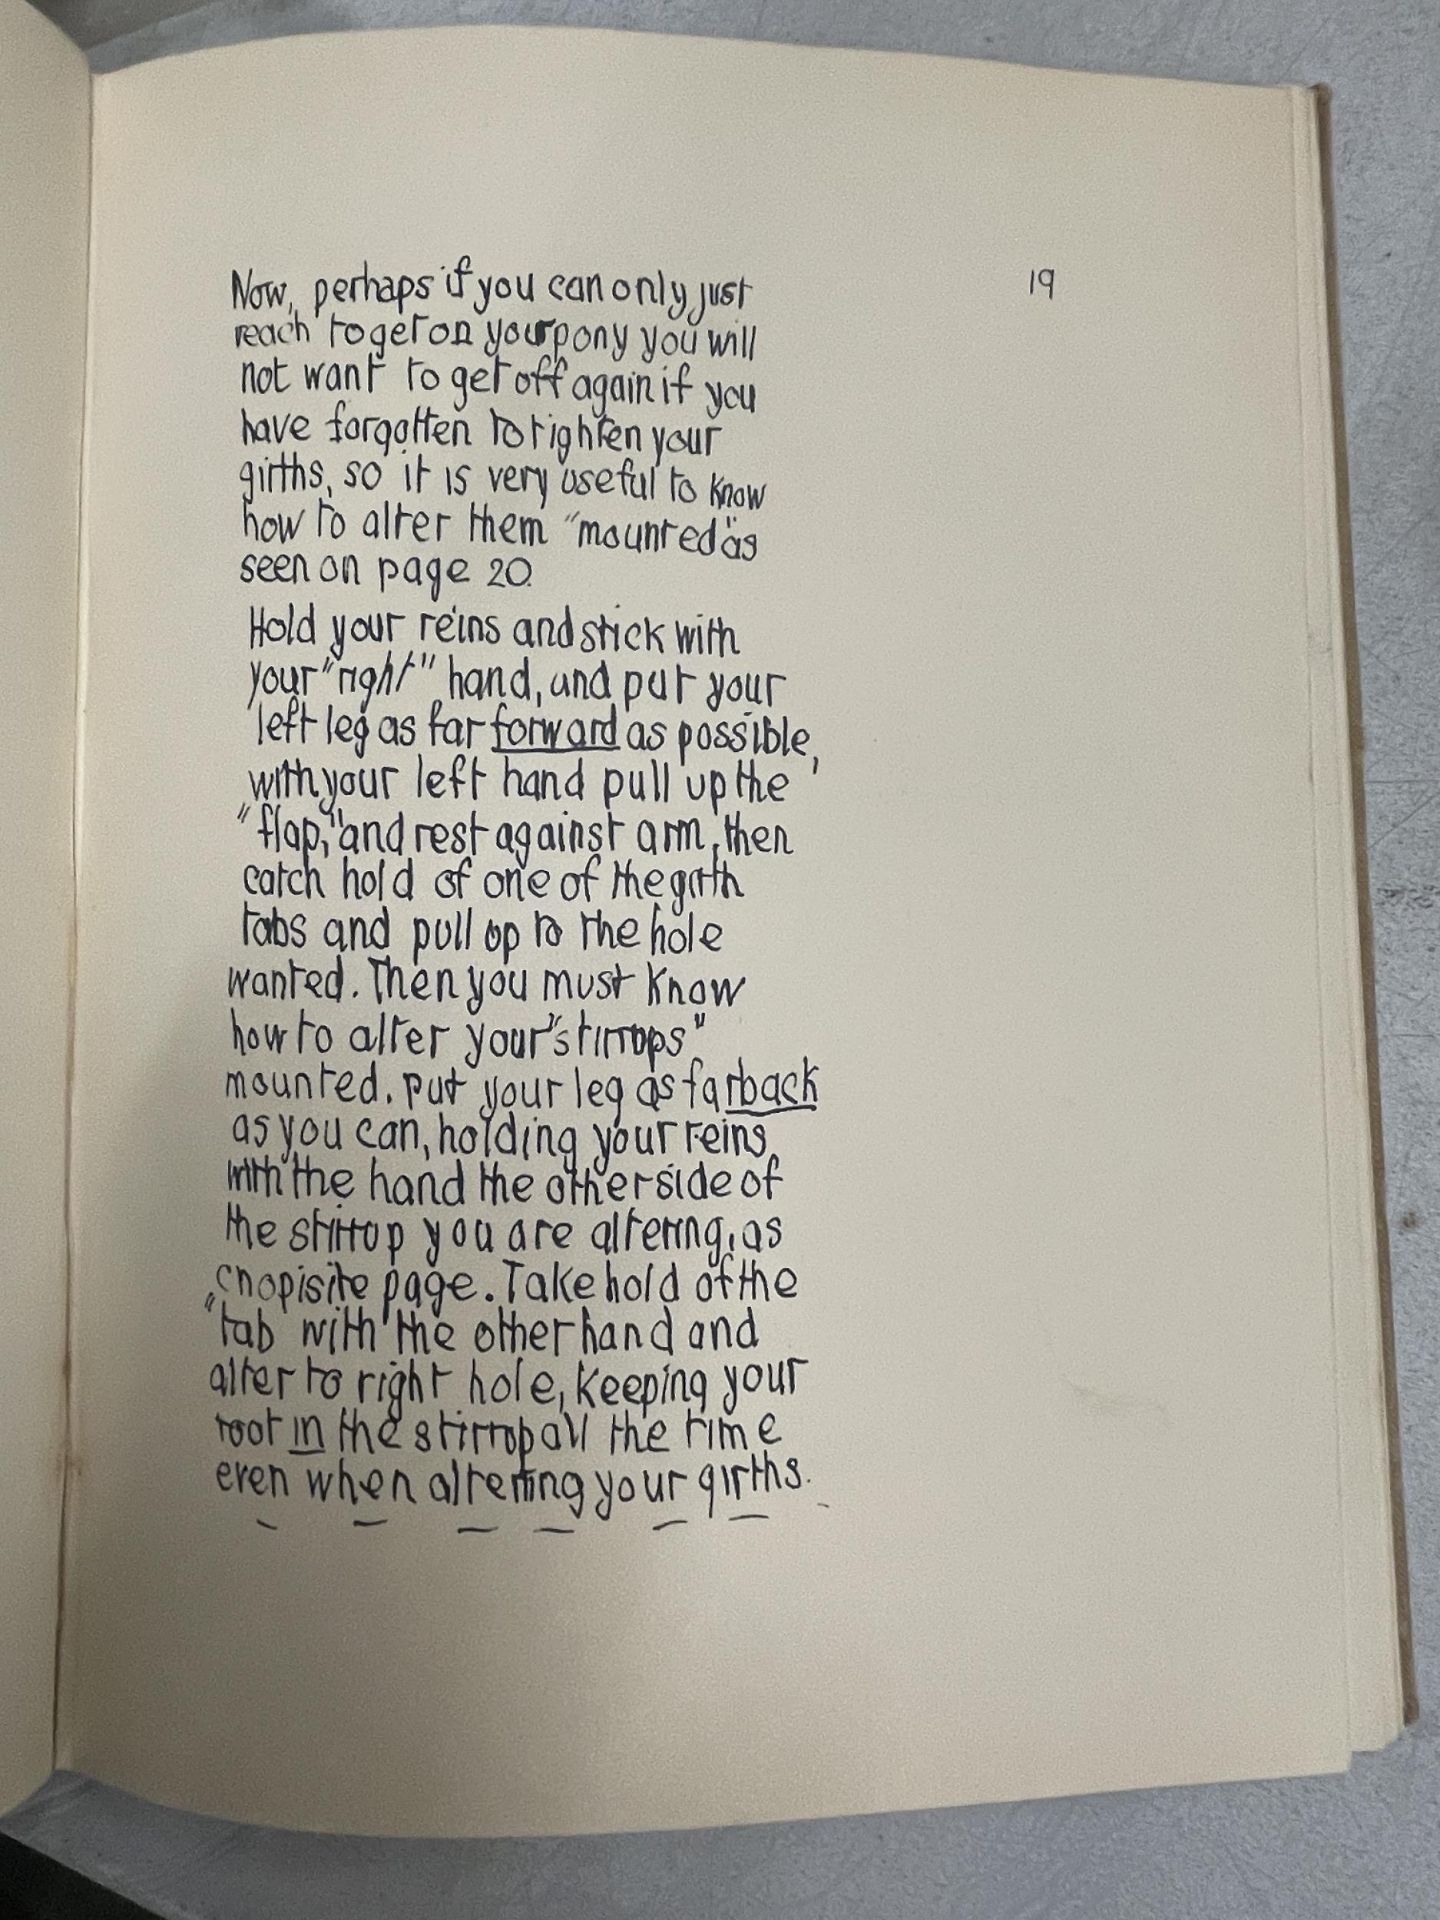 Now, perhaps if you can only just
19
reach to get on your pony you will
not want to get off again if you
have forgotten to tighten your
girths, so it is very useful to know
how to alter them "mounted" as
seen on page 20.
Hold your reins and stick with
your "right" hand, and put your
left leg as far forward as possible,
with your left hand pull up the
"flap," and rest against arm, then
catch hold of one of the girth
tabs and pull up to the hole
wanted. Then you must know
how to alter your "stirrops"
mounted. put your leg as far back
as you can, holding your reins
with the hand the other side of
the stirrop you are altering, as
on opisite page. Take hold of the
"tab" with the other hand and
alter to right hole, keeping your
foot in the stirrop all the time
even when altering your girths.